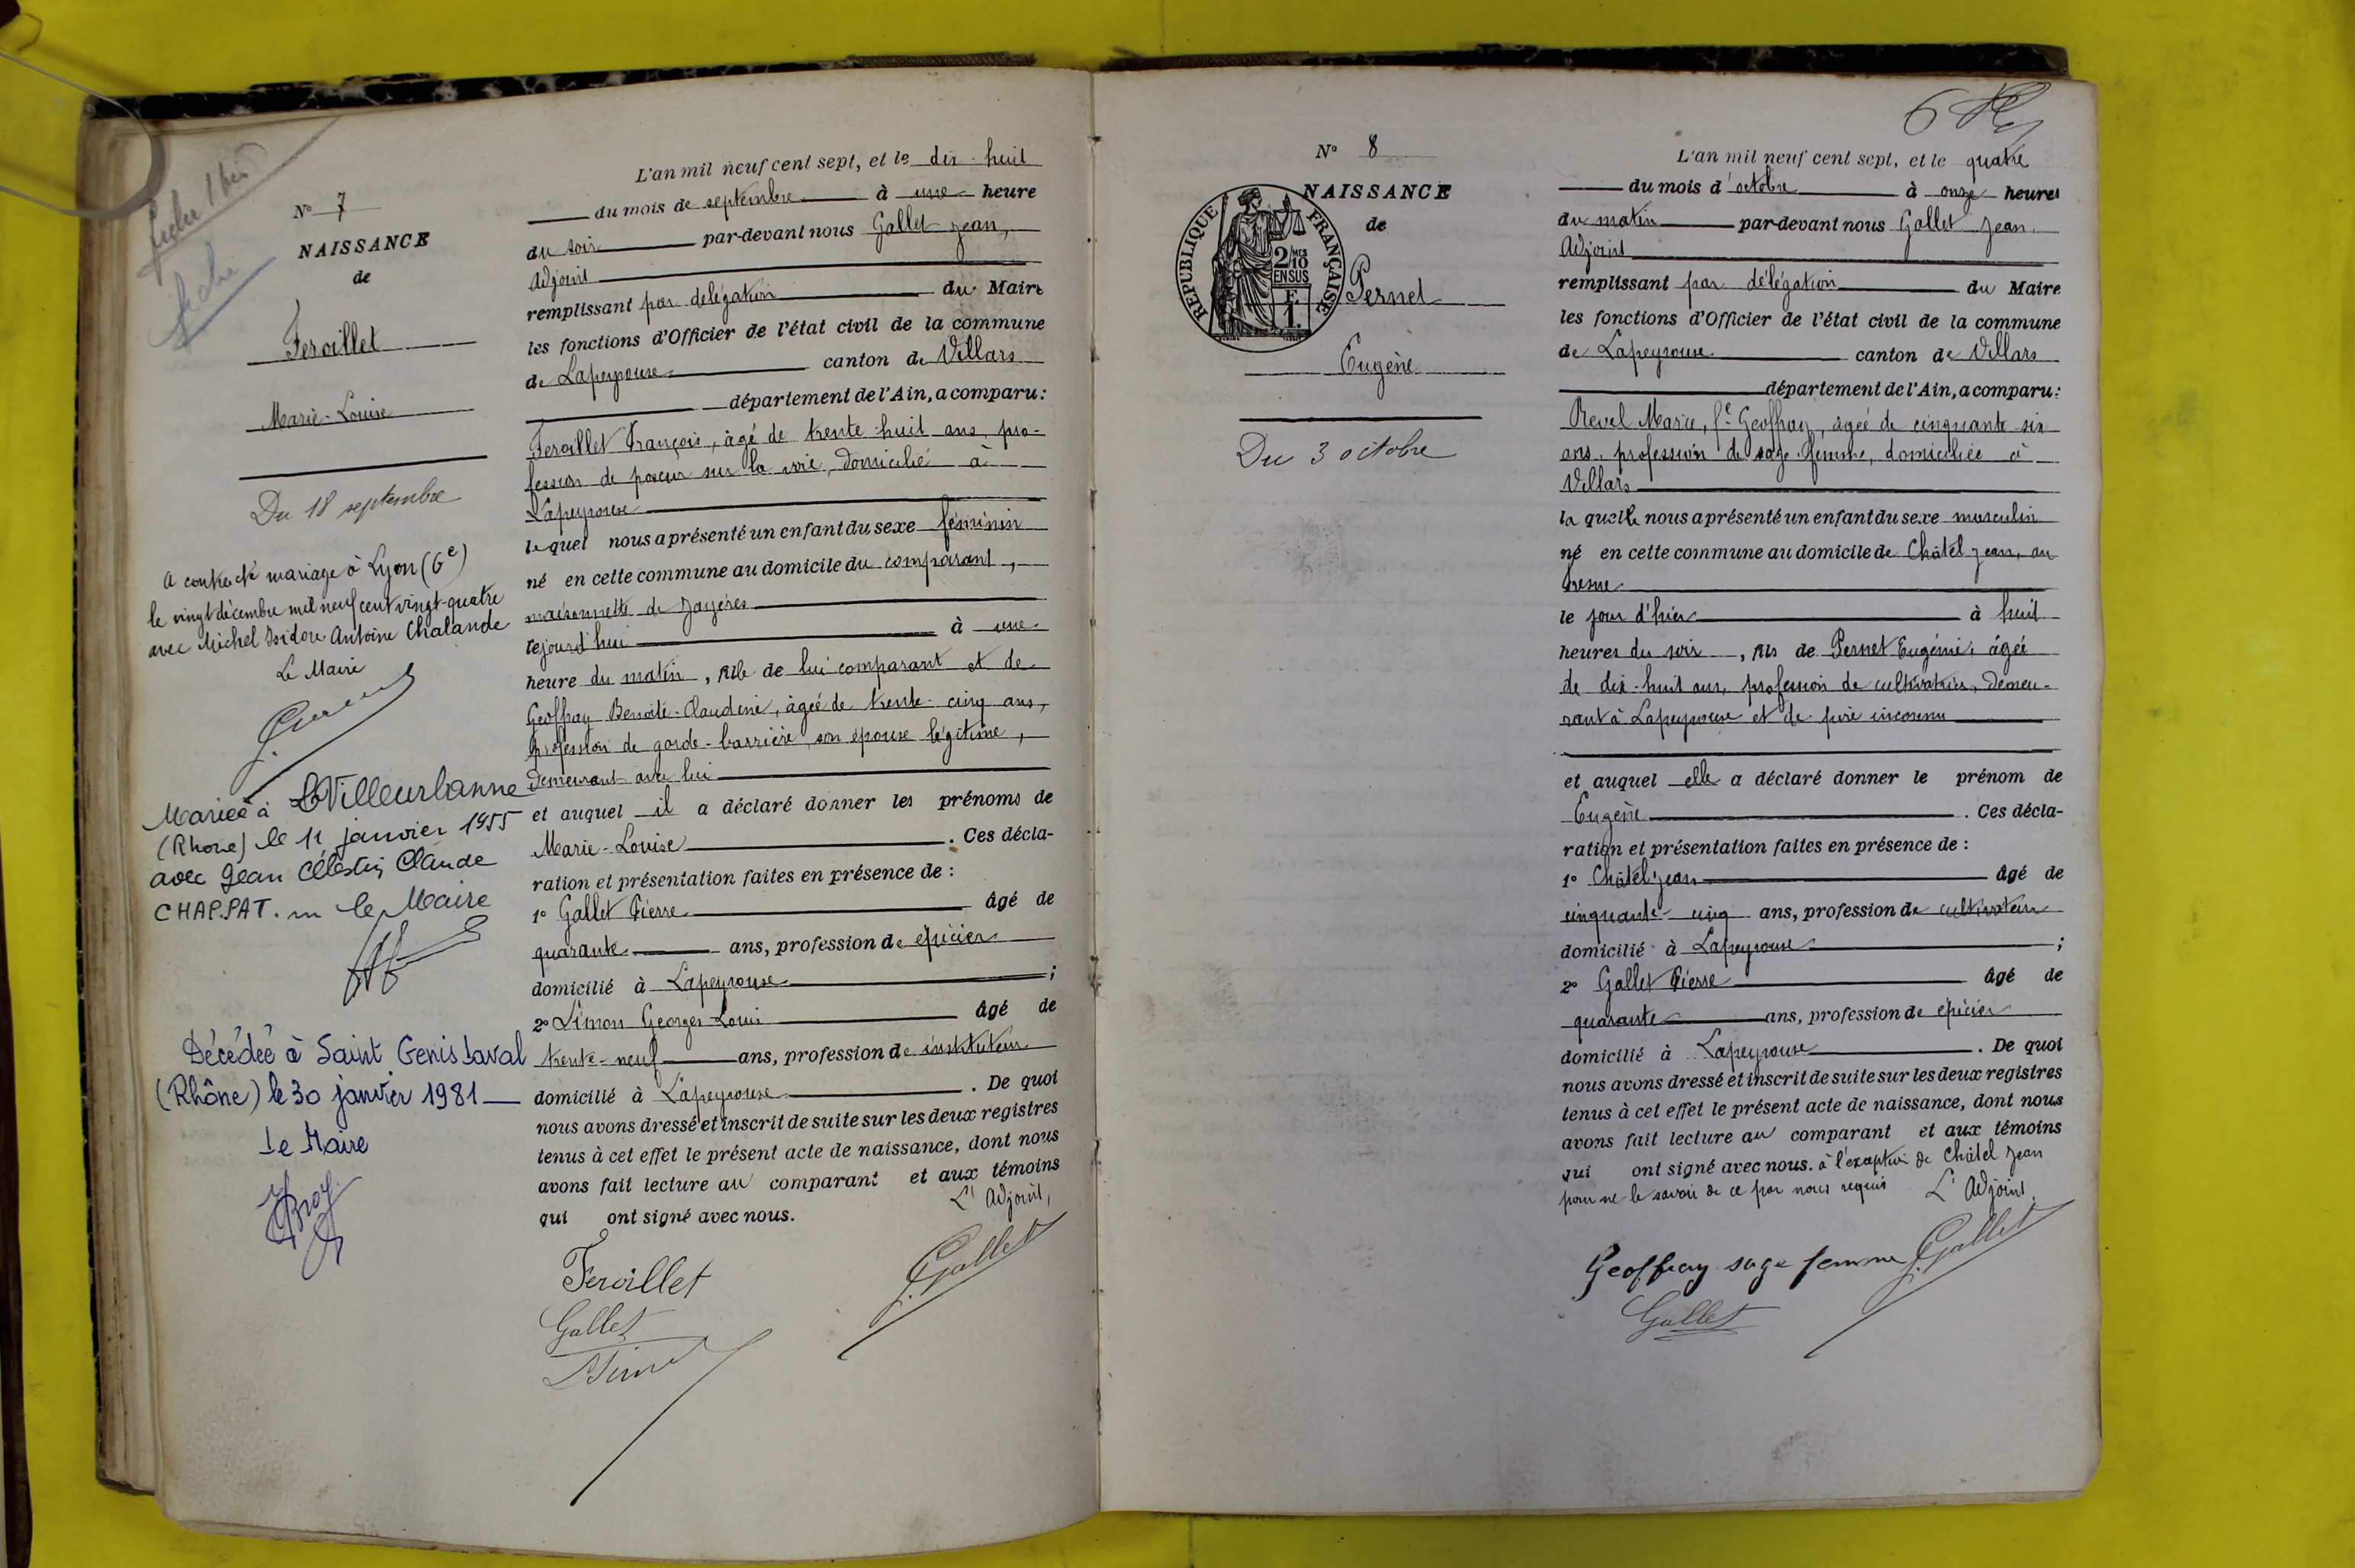 fiche
N° 7
NAISSANCE
de
Feroillet
Marie-Louise
Du 18 septembre
A contracté mariage à Lyon (6e)
le vingt décembre mil neuf cent vingt-quatre
avec Michel Isidore Antoine Chalande
Le Maire
Mariée à Villeurbanne
(Rhône) le 11 janvier 1955
avec Jean Célestin Claude
CHAPPAT. le Maire
Décédée à Saint Genis Laval
(Rhône) le 30 janvier 1981
Le Maire
L'an mil neuf cent sept, et le dix-huit
du mois de septembre à une heure
du soir par-devant nous Gallet Jean,
Adjoint
remplissant par délégation du Maire
les fonctions d'Officier de l'état civil de la commune
de Lapeyrouse canton de Villars
département de l'Ain, a comparu:
Feroillet François, âgé de trente-huit ans, pro-
fession de poseur sur la voie, domicilié à
Lapeyrouse
lequel nous a présenté un enfant du sexe féminin
né en cette commune au domicile du comparant,
maisonnette de
lejourd'hui à une
heure du matin, fille de lui comparant et de
Geoffray Benoîte-Claudine, âgée de trente-cinq ans,
profession de garde-barrière, son épouse légitime,
demeurant avec lui
et auquel il a déclaré donner les prénoms de
Marie-Louise. Ces décla-
ration et présentation faites en présence de :
1° Gallet Pierre âgé de
quarante ans, profession de épicier
domicilié à Lapeyrouse ;
2° Simon Georges-Louis âgé de
trente-neuf ans, profession de instituteur
domicilié à Lapeyrouse. De quoi
nous avons dressé et inscrit de suite sur les deux registres
tenus à cet effet le présent acte de naissance, dont nous
avons fait lecture au comparant et aux témoins
qui ont signé avec nous.
L'Adjoint,
Feroillet
J. Gallet
Gallet
Simon
6
N° 8
NAISSANCE
de
REPUBLIQUE FRANÇAISE
2/10 MES
EN SUS
F
1.
Pernet
Eugène
Du 3 octobre
L'an mil neuf cent sept, et le quatre
du mois d'octobre à onze heures
du matin par-devant nous Gallet Jean,
Adjoint
remplissant par délégation du Maire
les fonctions d'Officier de l'état civil de la commune
de Lapeyrouse canton de Villars
département de l'Ain, a comparu:
Revel Marie, fe Geoffray, âgée de cinquante-six
ans, profession de sage-femme, domiciliée à
Villars
laquelle nous a présenté un enfant du sexe masculin
né en cette commune au domicile de Châtel Jean, au
le jour d'hier à huit
heures du soir, fils de Pernet Eugénie, âgée
de dix-huit ans, profession de cultivatrice, demeu-
rant à Lapeyrouse et de père inconnu
et auquel elle a déclaré donner le prénom de
Eugène. Ces décla-
ration et présentation faites en présence de :
1° Châtel Jean âgé de
cinquante-cinq ans, profession de cultivateur
domicilié à Lapeyrouse ;
2° Gallet Pierre âgé de
quarante ans, profession de épicier
domicilié à Lapeyrouse. De quoi
nous avons dressé et inscrit de suite sur les deux registres
tenus à cet effet le présent acte de naissance, dont nous
avons fait lecture au comparant et aux témoins
qui ont signé avec nous. à l'exception de Châtel Jean
pour ne le savoir de ce par nous requis L'Adjoint,
Geoffray sage femme J. Gallet
Gallet